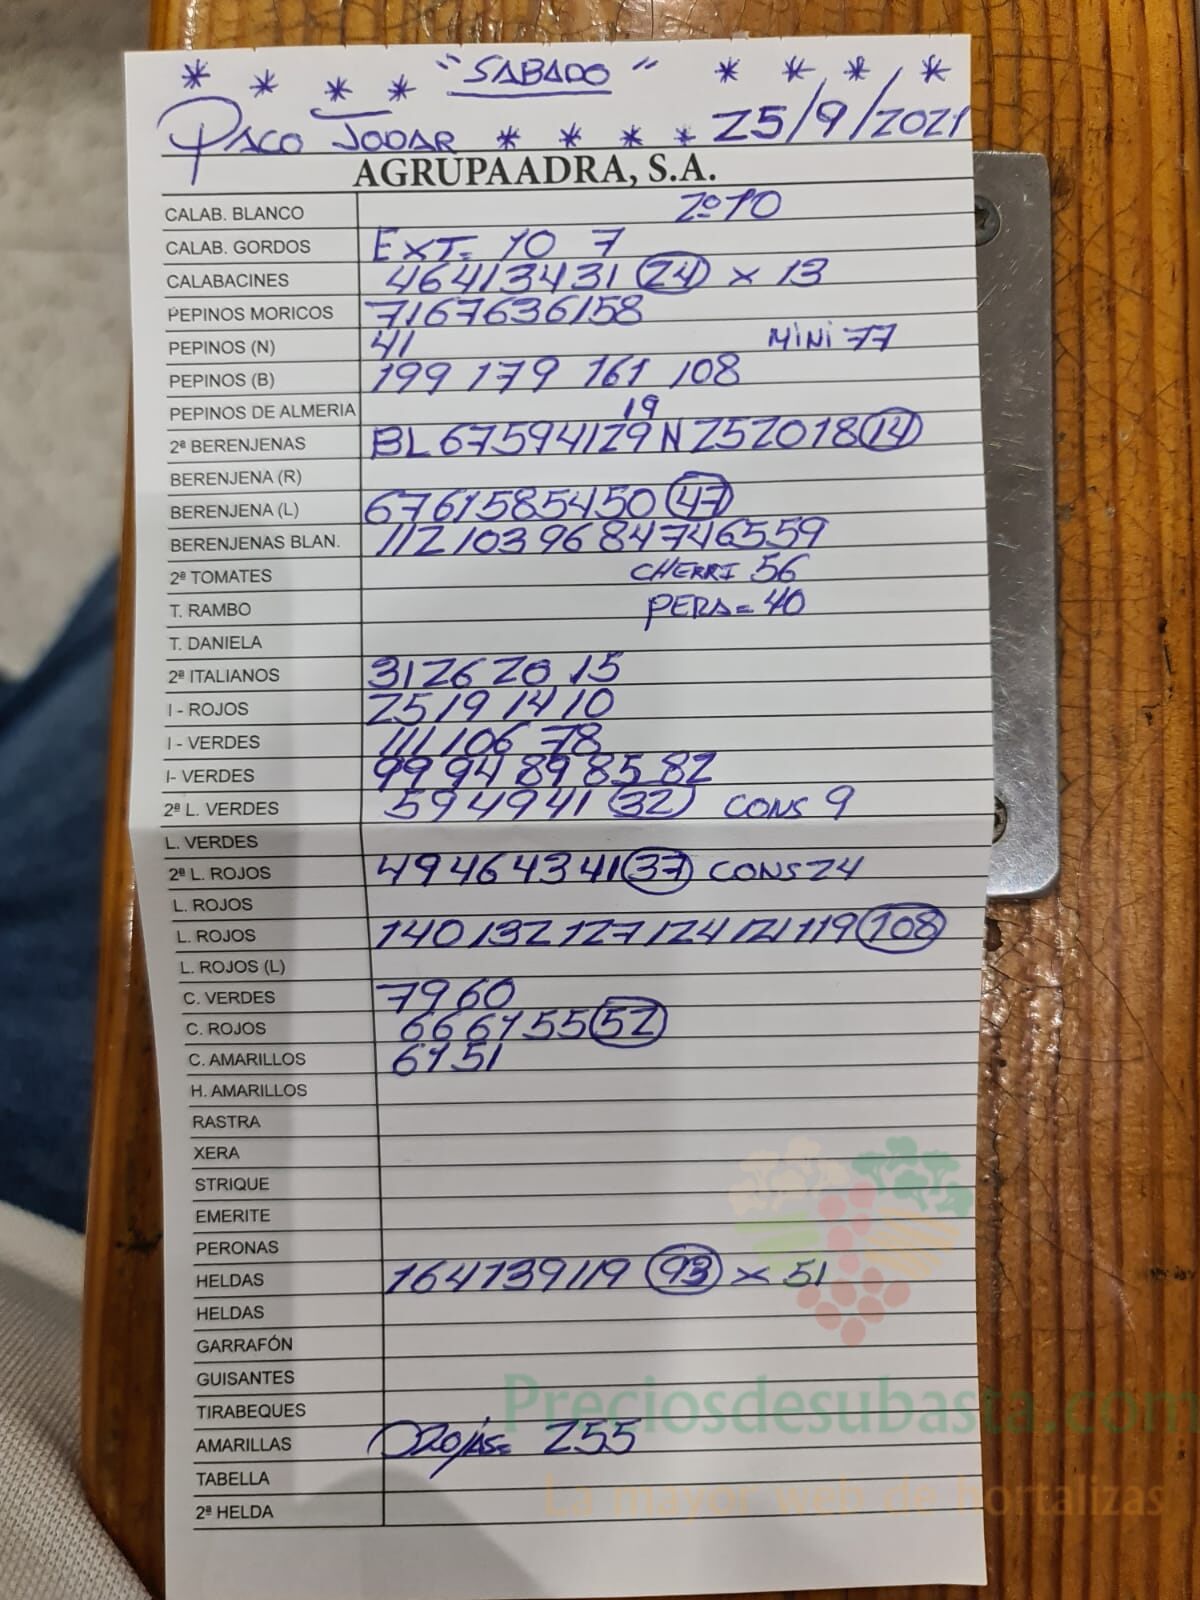 * * * * "SABADO" * * * *
PACO JODAR * * * * 25/9/2021
AGRUPAADRA, S.A.
CALAB. BLANCO 2º 10
CALAB. GORDOS EXT= 10 7
CALABACINES 46 41 34 31 24 x 13
PEPINOS MORICOS 71 67 63 61 58
PEPINOS (N) 41 MINI 77
PEPINOS (B) 199 179 161 108
PEPINOS DE ALMERIA 19
2ª BERENJENAS BL 67 59 41 29 N 25 20 18 14
BERENJENA (R)
BERENJENA (L) 67 61 58 54 50 47
BERENJENAS BLAN. 112 103 96 84 74 65 59
2ª TOMATES CHERRI 56
T. RAMBO PERA= 40
T. DANIELA
2ª ITALIANOS 31 26 20 15
I - ROJOS 25 19 14 10
I - VERDES 111 106 78
I- VERDES 99 94 89 85 82
2ª L. VERDES 59 49 41 32 CONS 9
L. VERDES
2ª L. ROJOS 49 46 43 41 37 CONS 24
L. ROJOS
L. ROJOS 140 132 127 124 121 119 108
L. ROJOS (L)
C. VERDES 79 60
C. ROJOS 66 61 55 52
C. AMARILLOS 61 51
H. AMARILLOS
RASTRA
XERA
STRIQUE
EMERITE
PERONAS
HELDAS 164 139 119 93 x 51
HELDAS
GARRAFÓN
GUISANTES
TIRABEQUES
AMARILLAS ROJAS= 255
TABELLA
2ª HELDA
Preciosdesubasta.com
La mayor web de hortalizas